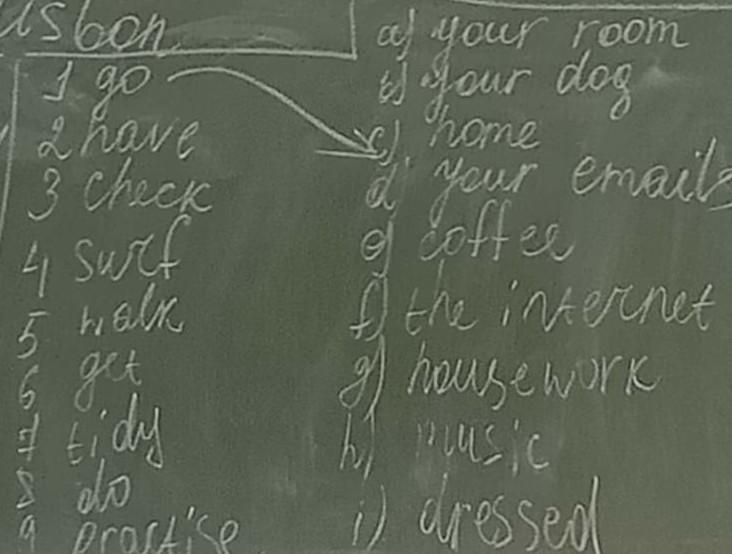 a) your room
1 go
b) your dog
2 have
c) home
3 check
d) your emails
4 surf
e) coffee
5 walk
f) the internet
6 get
g) housework
7 tidy
h) music
8 do
i) dressed
9 practise